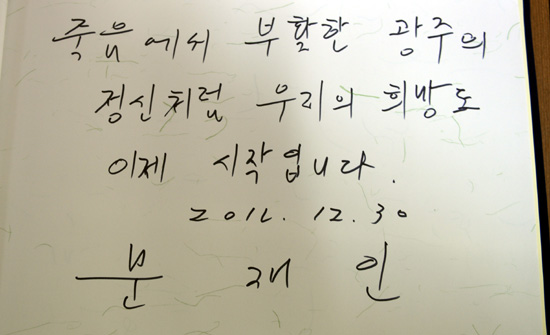 죽음에서 부활한 광주의
정신처럼 우리의 희망도
이제 시작입니다.
2012. 12. 30
문 재 인